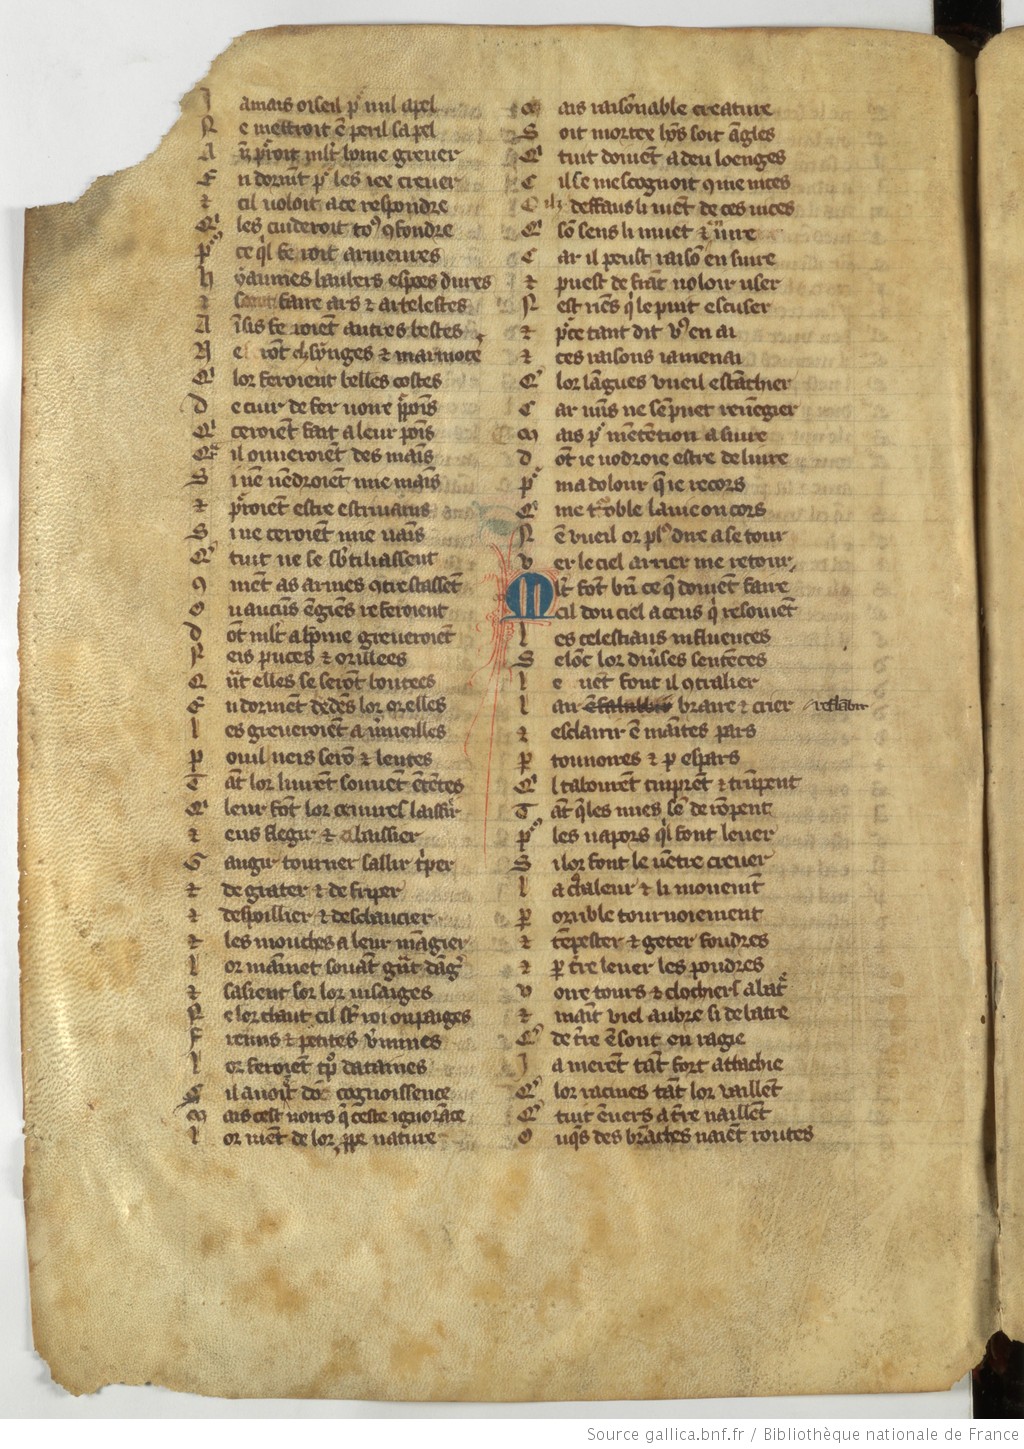 J amais oiseil pͬ nul apel
N e mettroit ē peril sa pel
A ī pͬroit ml't hōme grever
E n dormāt pͬ les iex crever
⁊ cil voloit a ce respondre
Q' les cuideroit to⁹ ꝯfondre
pͬ ce q̄l feroit armeures
H yaumes haubers espees dures
⁊ faire ars ⁊ arbelestes
A īsis feroient autres bestes
N e rōt cil sīnges ⁊ marmotes
Q' lor feroient belles costes
D e cuir de fer voire ppoīs
Q' ceroiēt fait a leur poīs
Q̄r il ovveroiēt des maīs
S i nē vēdroiēt mie maīs
⁊ pͬroiēt estre escrivains
S i ne ceroiēt mie vaīs
Q' tuit ne se sb'tiliassent
ꝯ mēt as armes ꝯtrestassēt
O u aucūs ēgiēs referoient
D ōt ml't a hōme greveroiēt
N eis puces ⁊ orillees
Q ūt elles se serōt boutees
E n dormēt dedēs lor orelles
L es greveroiēt a m̄veilles
P ouil neis serō ⁊ lentes
T āt lor livrēt souvēt ētētes
Q' leur fōt lor oeuvres laissier
⁊ eus flegir ⁊ abaissier
G auchir tourner saillir tper
⁊ de grater ⁊ de friper
⁊ despoillier ⁊ deschaucier
⁊ les mouches a leur māgier
L or mainnet souāt grāt dāg'
⁊ sasient sor lor visaiges
N e lor chaut cil sōt roi ou paiges
F remis ⁊ petites v'mines
L or feroiēt tp̄ dataines
S il avoiēt dōc cognoissence
M ais cest voirs q̄ ceste ignorāce
L or viēt de lor ppe nature
M ais raisōnable creature
S oit mortex hōs soit āgles
Q' tuit doivēt a deu loenges
C il se mescognoit ꝯme nices
C ilz deffaus li viēt de ces vices
Q' sō sens li muet ⁊ ēivre
C ar il peust raisō ensuire
⁊ puest de frāc voloir user
N est riēs q̄ le puit escuser
⁊ pͬce tant dit v⁹ en ai
⁊ ces raisons i amenai
Q' lor lāgues vueil estāchier
C ar nūs ne sē puet revēgier
M ais pͬ mētētion a suire
D ōt ie vodroie estre delivre
pͬ ma dolour q̄ ie recors
Q' me troble lame ou cors
N ē vueil or pl⁹ dire a se tour
V er le ciel arrier me retour
M l't fōt bn̄ ce q̄ doivēt faire
cil dou ciel a ceus q̄ resoivēt
L es celestiaus influences
S elōc lor div'ses sentēces
L e vēt font il ꝯtralier
L air braire ⁊ crier
⁊ esclarir ē maītes pars
P tonnoires ⁊ p espars
Q l tabourēt timprēt ⁊ trūpent
T āt q̄les nues sē derōpent
pͬ les vapors q̄l font lever
S i lor font le vētre crever
L a chaleur ⁊ li movemāt
P orrible tournoiement
⁊ tēpester ⁊ geter foudres
⁊ p t're lever les poudres
V oire tours ⁊ clochiers abat'
⁊ maīt viel aubre si debatre
Q' de t're ē sont enragie
J a nierēt tāt fort attachie
Q' lor racines tāt lor vaillēt
Q' tuit ēvers a t're naillēt
O u q̄s des brāches naiēt routes